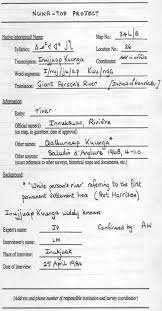 NUNA-TOP PROJECT
Native (aboriginal) Name: Map No.: 34L/8
Syllabics: Location No.: 26
Transcription: Inujjuap Kuunga Coordinates: Add in office
Word segments: Inuj/ju/ap Kuu/nga
Translation: Giant Person's River
Information:
Entity: River
Official name(s): Innuksuac, Rivière
(on map, in gazetteer, date of approval)
Other names: Qallunaap Kuunga *
Other sources: Saladin d'Anglure 1968, 4-110
(must reference to other surveys, historical maps and documents, etc.)
Background:
* 'White person's river' referring to the first
permanent settlement here (Port Harrison)
Inujjuap Kuunga widely known
Expert's name: JP Confirmed by: AW
Interviewer's name: LM
Place: Inukjuak
Date: 25 April 1984
(Address and phone number of responsible institution and survey coordinator)